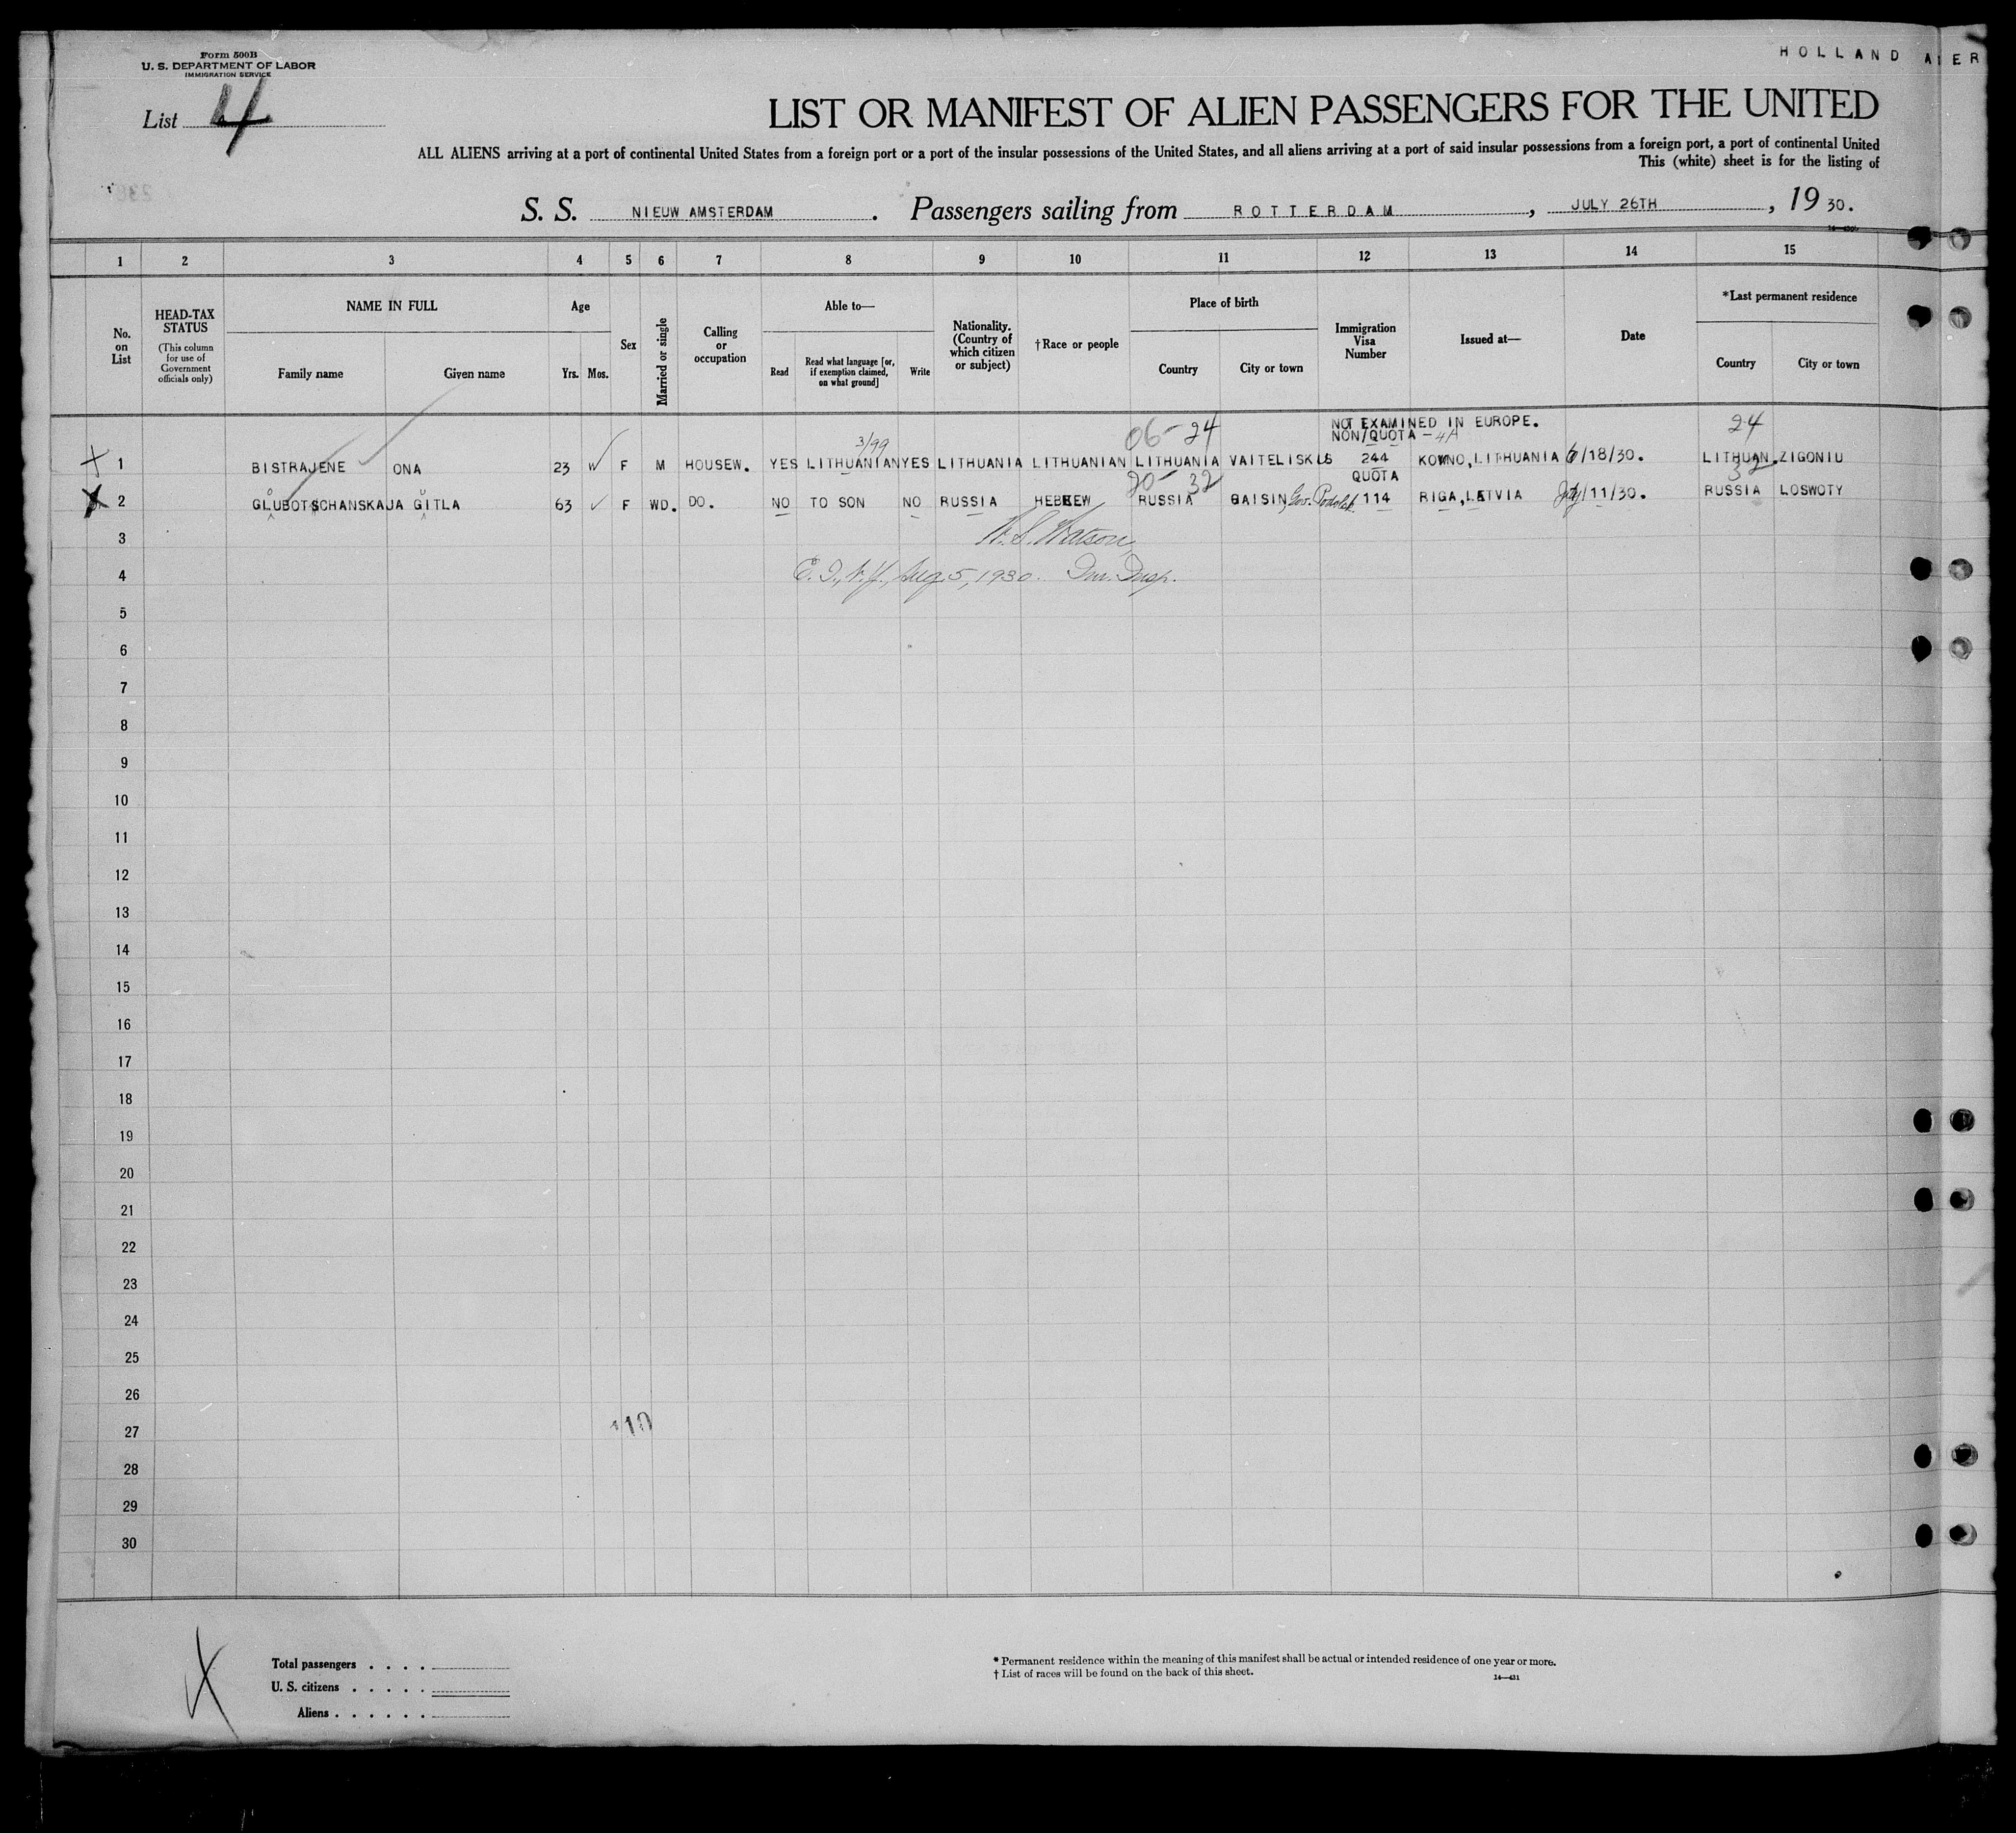 HOLLAND AMER
Form 500B
U. S. DEPARTMENT OF LABOR
IMMIGRATION SERVICE
List 4
LIST OR MANIFEST OF ALIEN PASSENGERS FOR THE UNITED
ALL ALIENS arriving at a port of continental United States from a foreign port or a port of the insular possessions of the United States, and all aliens arriving at a port of said insular possessions from a foreign port, a port of continental United
This (white) sheet is for the listing of
S. S. NIEUW AMSTERDAM. Passengers sailing from ROTTERDAM, JULY 26TH, 1930.
1 2 3 4 5 6 7 8 9 10 11 12 13 14 15
No. on List
HEAD-TAX STATUS
(This column for use of Government officials only)
NAME IN FULL
Family name
Given name
Age
Yrs. Mos.
Sex
Married or single
Calling or occupation
Able to—
Read
Read what language [or, if exemption claimed, on what ground]
Write
Nationality. (Country of which citizen or subject)
†Race or people
Place of birth
Country
City or town
Immigration Visa Number
Issued at—
Date
*Last permanent residence
Country
City or town
3/99 06-24 NOT EXAMINED IN EUROPE. 24
NON/QUOTA -4A
1 BISTRAJENE ONA 23 F M HOUSEW. YES LITHUANIAN YES LITHUANIA LITHUANIAN LITHUANIA VAITELISKLS 244 KOWNO, LITHUANIA 6/18/30. LITHUAN. ZIGONIU
20-32 QUOTA 32
2 GLUBOTSCHANSKAJA GITLA 63 F WD. DO. NO TO SON NO RUSSIA HEBREW RUSSIA GAISIN, Gov. Podolsk 114 RIGA, LETVIA July/11/30. RUSSIA LOSWOTY
3
W. S. Watson
4
E. I., N.Y., Aug. 5, 1930. Imm. Insp.
5
6
7
8
9
10
11
12
13
14
15
16
17
18
19
20
21
22
23
24
25
26
27
110
28
29
30
Total passengers . . . .
U. S. citizens . . . . .
Aliens . . . . . .
* Permanent residence within the meaning of this manifest shall be actual or intended residence of one year or more.
† List of races will be found on the back of this sheet.
14—431